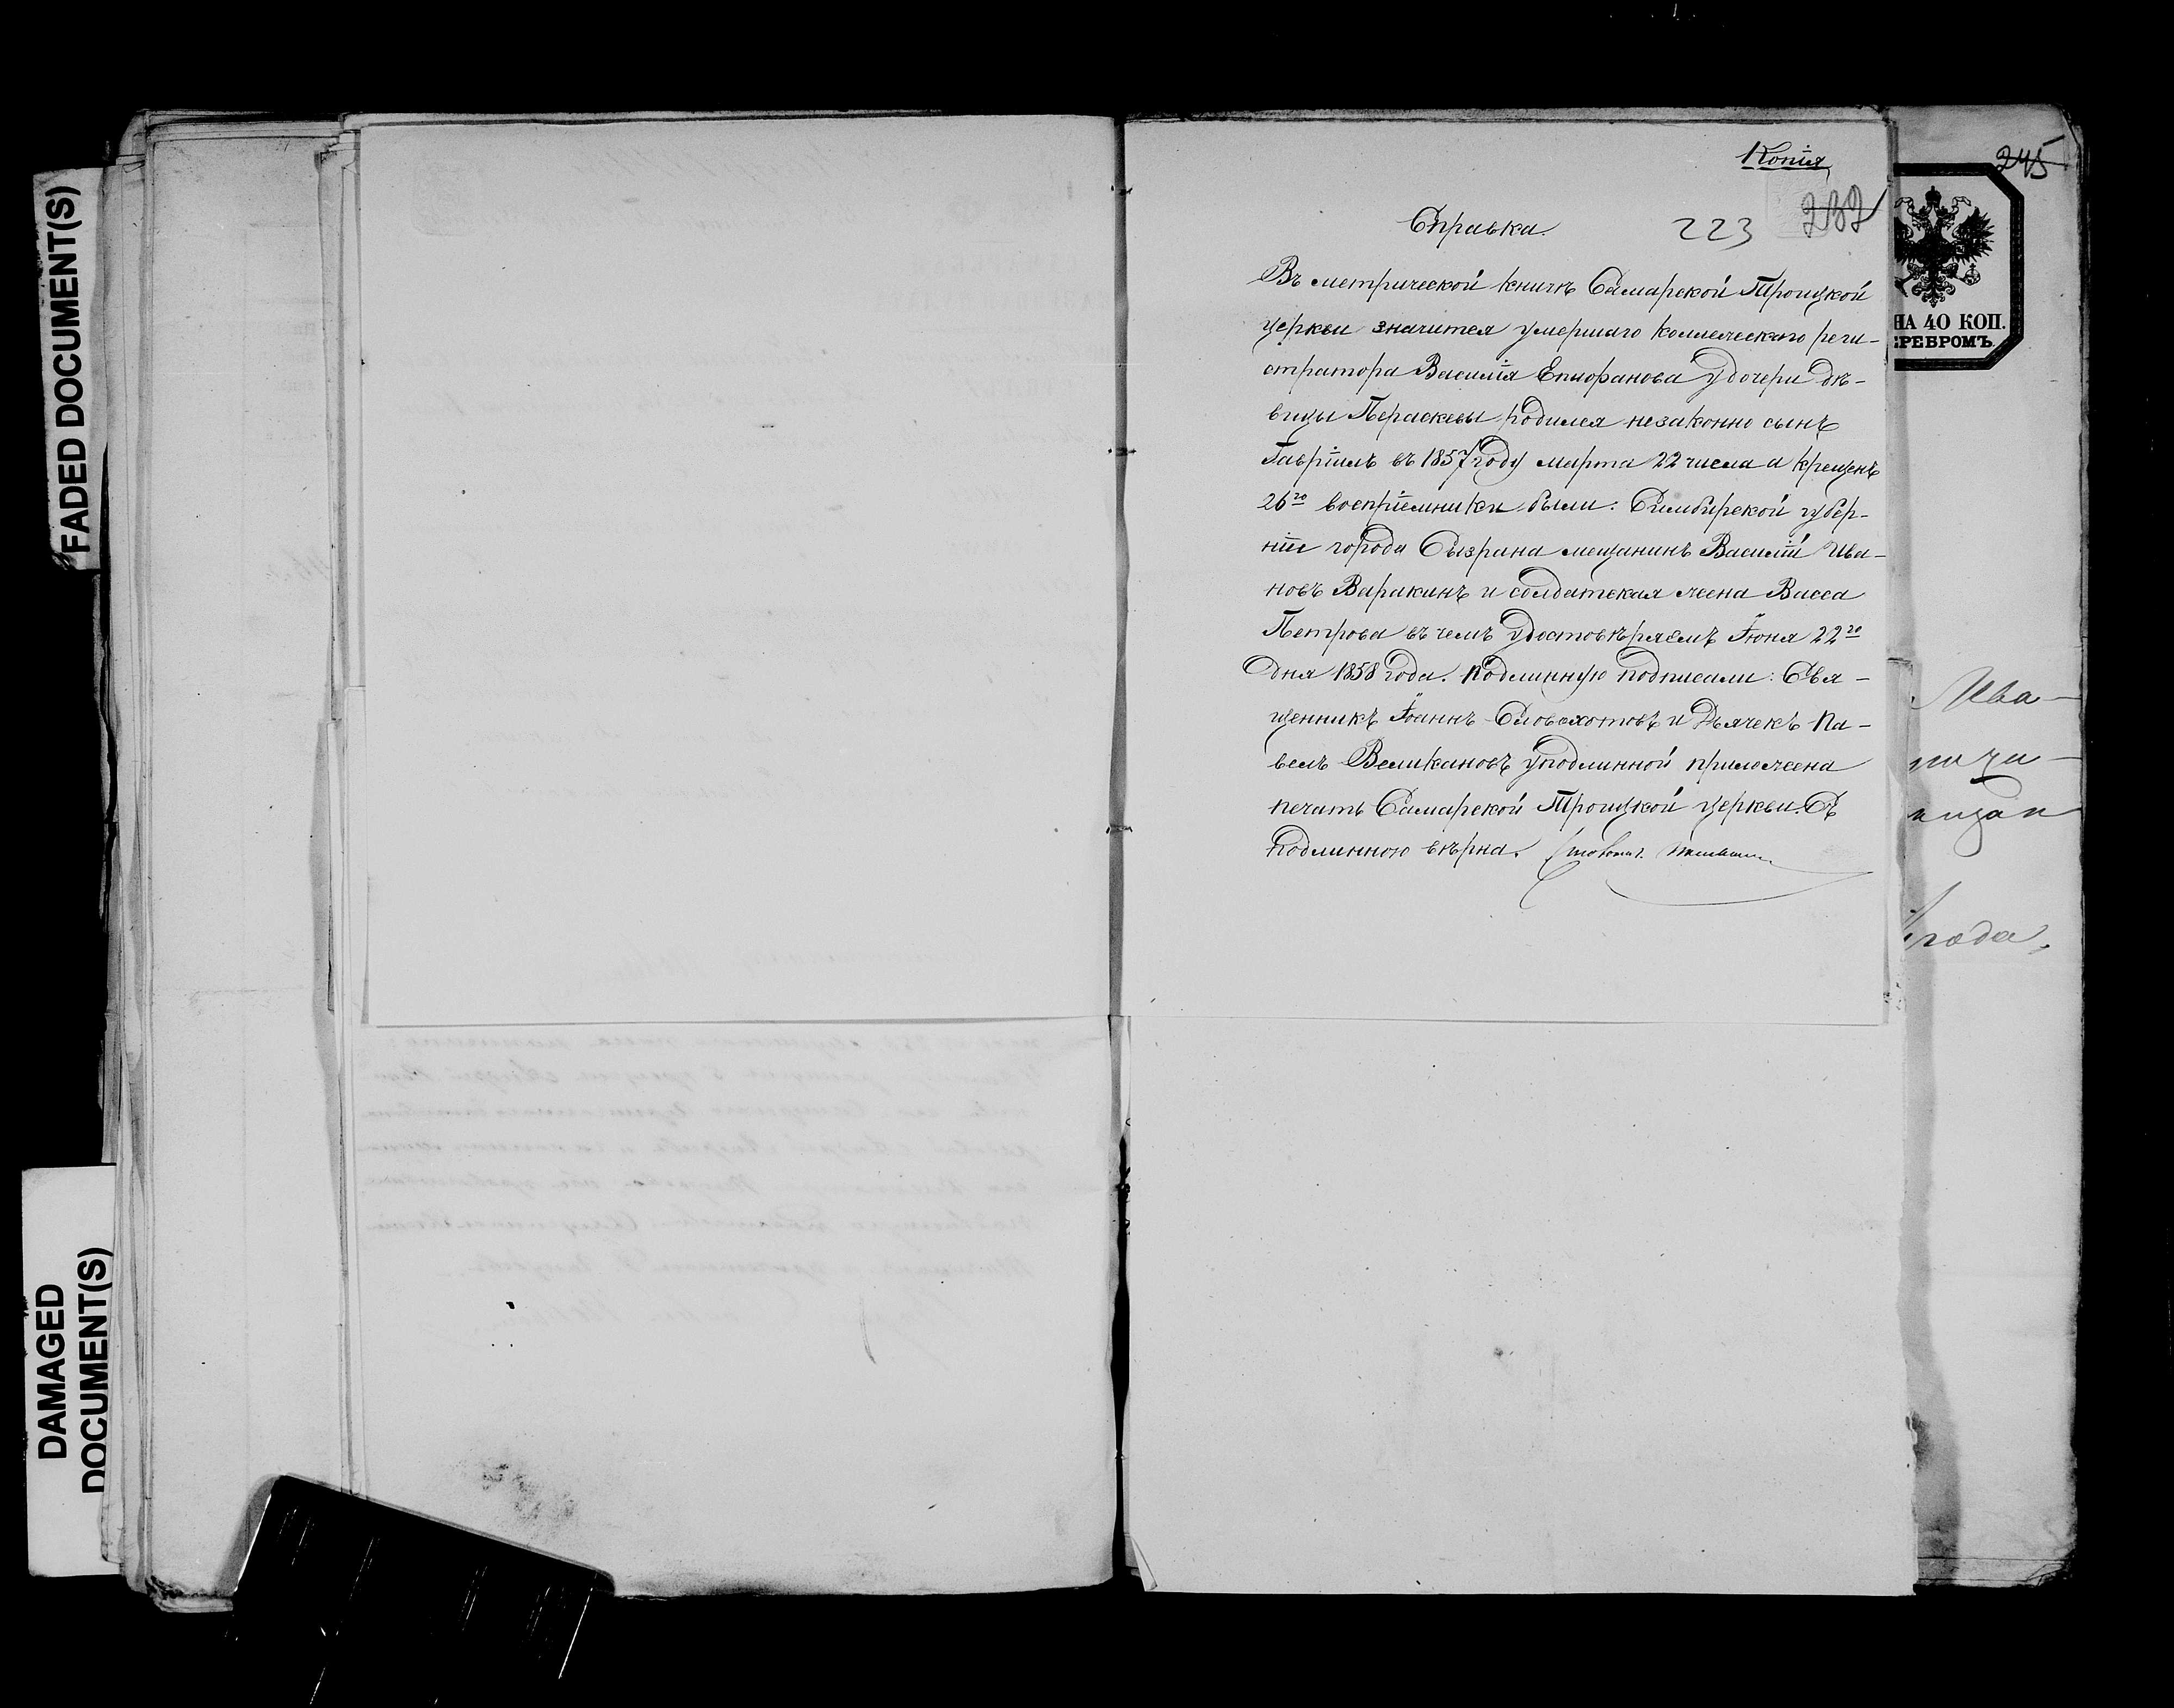 FADED DOCUMENT(S)
DAMAGED
DOCUMENT(S)
Копія
245
232
223
Справка.
Въ метрической книгѣ Самарской Троицкой
церкви значится умершаго коллежскаго реги-
стратора Василія Епифанова удочери дѣ-
вицы Параскевы родился незаконно сынъ
Гавріилъ въ 1857 году марта 22 числа а крещенъ
26го воспріемники были: Симбирской губер-
ніи города Сызрана мещанинъ Василій Ива-
новъ Варакинъ и солдатская жена Васса
Петрова въ чемъ удостовѣряемъ Іюня 22го
дня 1858 года. Подлинную подписали: Свя-
щенникъ Іоаннъ Словохотовъ и Дьячекъ Па-
велъ Великановъ уподлинной приложена
печать Самарской Троицкой церкви. Съ
подлинною вѣрна.
НА 40 КОП.
РЕБРОМЪ.
Ива-
года,